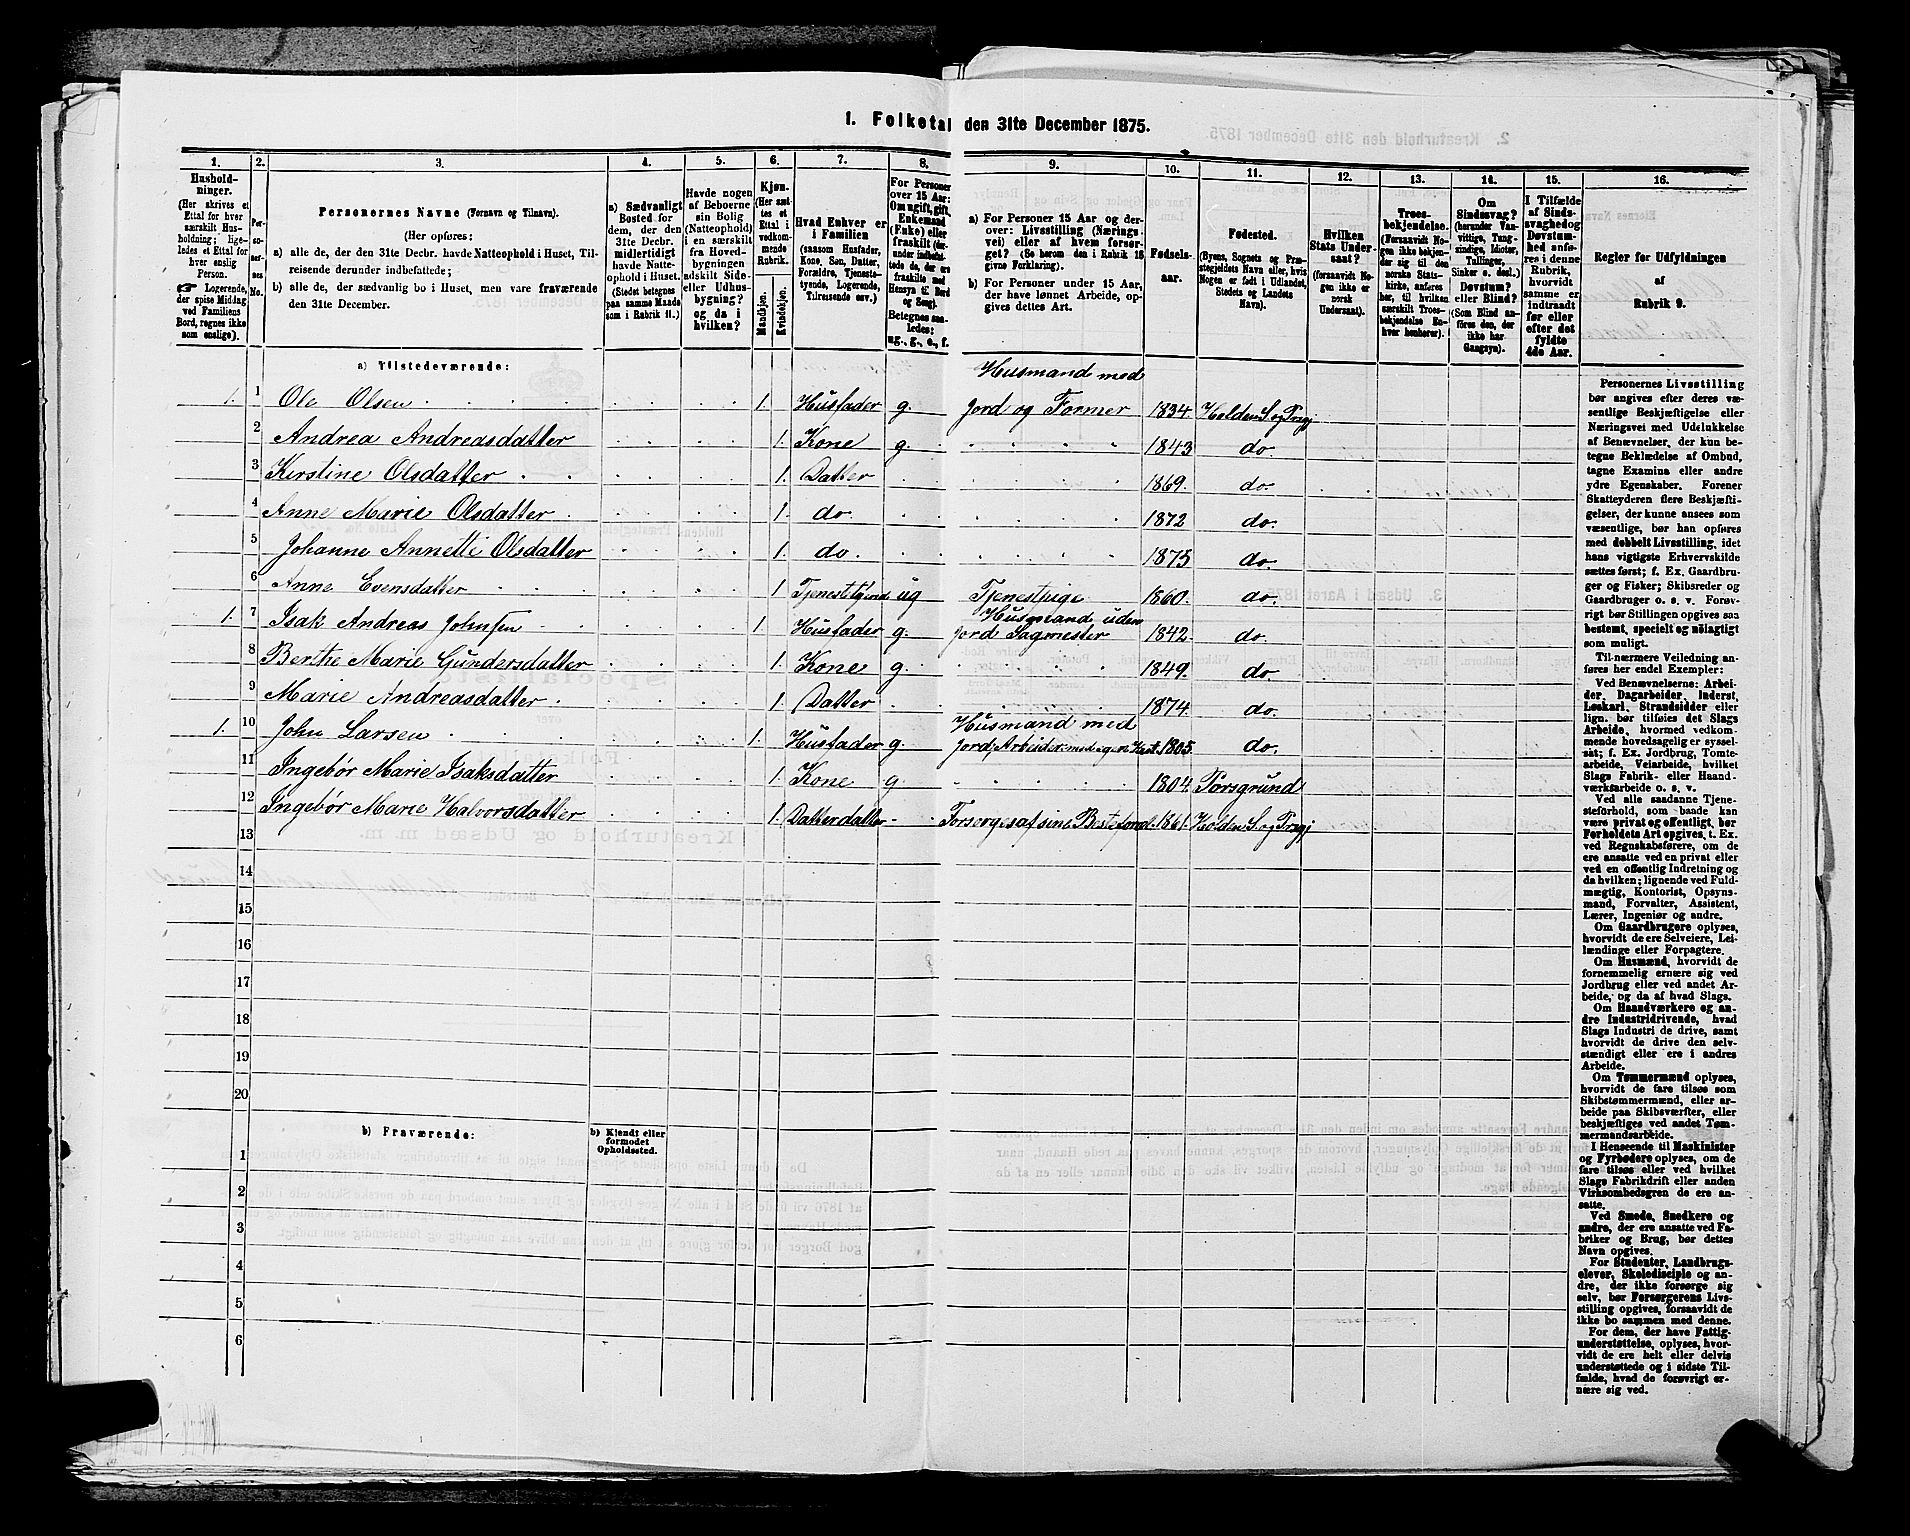 1. Folketal den 31te December 1875.
1.
Husholdninger.
(Her skrives et
Ettal for hver
særskilt Husholdning;
ligeledes et Ettal for
hver enslig
Person.
☛ Logerende,
der spise Middag
ved Familiens
Bord, regnes ikke
som enslige).
2.
Personernes No.
3.
Personernes Navne (Fornavn og Tilnavn).
(Her opføres:
a) alle de, der den 31te Decbr. havde Natteophold i Huset, Tilreisende derunder indbefattede;
b) alle de, der sædvanlig bo i Huset, men vare fraværende
den 31te December.
4.
a) Sædvanligt
Bosted for
dem, der den
31te Decbr.
midlertidigt
havde Natteophold i Huset.
(Stedet betegnes
paa samme Maade
som i Rubrik 11.)
5.
Havde nogen
af Beboerne
sin Bolig
(Natteophold)
i en særskilt
fra Hovedbygningen
adskilt Side- eller Udhusbygning?
og da i
hvilken?
6.
Kjøn.
(Her sættes et
Ettal i
vedkommende
Rubrik.
Mandkjøn.
Kvindekjøn.
7.
Hvad Enhver er
i Familien
(saasom Husfader,
Kone, Søn, Datter,
Forældre, Tjenestetyende, Logerende,
Tilreisende osv.)
8.
For Personer
over 15 Aar:
Om ugift, gift,
Enkemand
(Enke) eller
fraskilt (derunder indbefattede de, der ere
fraskilte med
Hensyn til Bord
og Seng).
Betegnes saaledes:
ug., g., e., f.
9.
a) For Personer 15 Aar og derover: Livsstilling (Næringsvei) eller af hvem forsørget? (Se herom den i Rubrik 16
givne Forklaring).
b) For Personer under 15 Aar,
der have lønnet Arbeide, opgives dettes Art.
10.
Fødselsaar.
11.
Fødested.
(Byens, Sognets og Præstegjeldets Navn eller, hvis
Nogen er født i Udlandet,
Stedets og Landets
Navn).
12.
Hvilken
Stats Undersaat?
(forsaavidt Nogen ikke er
norsk
Undersaat).
13.
Troesbekjendelse.
(Forsaavidt Nogen ikke bekjender sig til den
norske Statskirke, anføres
her, til hvilken
særskilt Troesbekjendelse Enhver henhører).
14.
Om
Sindssvag?
(herunder Vanvittige, Tungsindige, Idioter,
Tullinger,
Sinker o. desl.)
Døvstum?
eller Blind?
(Som Blind anføres den, der
ikke har
Gangsyn).
15.
I Tilfælde
af Sindssvaghed og
Døvstumhed anføres i denne
Rubrik,
hvorvidt
samme er
indtraadt
før eller
efter det
fyldte
4de Aar.
16.
Regler for Udfyldningen
af
Rubrik 9.
a) Tilstedeværende:
Husmand med
1. 1 Ole Olsen 1. Husfader g. Jord og Former 1834 Holden S og Prgj
2 Andrea Andreasdatter 1. Kone g. 1843 do.
3 Kirstine Olsdatter 1. Datter 1869. do.
4 Anne Marie Olsdatter 1. do. 1872 do.
5 Johanne Annetti Olsdatter 1. do. 1875 do.
6 Anne Evensdatter 1 Tjenestetyende ug Tjenestepige 1860. do.
Husmand uden
1. 7 Isak Andreas Johnsen 1. Husfader g. Jord Sagmester 1842. do.
8 Berthe Marie Gundersdatter 1. Kone g. 1849. do.
9 Marie Andreasdatter 1. Datter 1874. do.
Husmand med
1. 10 John Larsen 1. Husfader g. Jord, Arbeider med egen Hest 1805. do.
11 Ingebør Marie Isaksdatter 1. Kone g 1804. Porsgrund
12 Ingebør Marie Halvorsdatter 1. Datterdatter Forsørges af sine Besteforæl. 1861. Holden S. og Prgj
13
14
15
16
17
18
19
20
b) Fraværende:
b) Kjendt eller
formodet
Opholdssted.
1
2
3
4
5
6
Personernes Livsstilling
bør angives efter deres væsentlige Beskjæftigelse eller
Næringsvei med Udelukkelse
af Benævnelser, der kun betegne Beklædelse af Ombud,
tagne Examina eller andre
ydre Egenskaber. Forener
Skatteyderen flere Beskjæftigelser, der kunne ansees som
væsentlige, bør han opføres
med dobbelt Livsstilling, idet
hans vigtigste Erhvervskilde
sættes først; f. Ex. Gaardbruger og Fisker; Skibsreder og
Gaardbruger o. s. v. Forøvrigt bør Stillingen opgives saa
bestemt, specielt og nøiagtigt
som muligt.
Til nærmere Veiledning anføres her endel Exempler:
Ved Benævnelserne: Arbeider, Dagarbeider, Inderst,
Løskarl, Strandsidder eller
lign. bør tilføies det Slags
Arbeide, hvormed vedkommende hovedsagelig er sysselsat; f. Ex. Jordbrug, Tomtearbeide, Veiarbeide, hvilket
Slags Fabrik- eller Haandværksarbeide o. s. v.
Ved alle saadanne Tjenesteforhold, som baade kan
være privat og offentligt, bør
Forholdets Art opgives, t. Ex.
ved Regnskabsførere, om de
ere ansatte ved en privat eller
en offentlig Indretning og
da hvilken; lignende ved Fuldmægtig, Kontorist, Opsynsmand, Forvalter, Assistent,
Lærer, Ingeniør og andre.
Om Gaardbrugere oplyses,
hvorvidt de ere Selveiere, Leilændinge eller Forpagtere.
Om Husmænd, hvorvidt de
fornemmelig ernære sig ved
Jordbrug eller ved andet Arbeide, og da af hvad Slags.
Om Haandværkere og andre Industridrivende, hvad
Slags Industri de drive, samt
hvorvidt de drive den selvstændigt eller ere i andres
Arbeide.
Om Tømmermænd oplyses,
hvorvidt de fare tilsøs som
Skibstømmermænd, eller arbeide paa Skibsværfter, eller
beskjæftiges ved andet Tømmermandsarbeide.
I Henseende til Maskinister
og Fyrbødere oplyses, om de
fare tilsøs eller ved hvilket
Slags Fabrikdrift eller anden
Virksomhedsgren de ere ansatte.
Ved Smede, Snedkere og
andre, der ere ansatte ved Fabriker og Brug, bør dettes
Navn opgives.
For Studenter, Landbrugselever, Skoledisciple og andre, der ikke forsørge sig
selv, bør Forsørgerens Livsstilling opgives, forsaavidt de
ikke bo sammen med denne.
For dem, der have Fattigunderstøttelse, oplyses, hvorvidt de ere helt eller delvis
understøttede og i sidste Tilfælde, hvad de forøvrigt ernære sig ved.